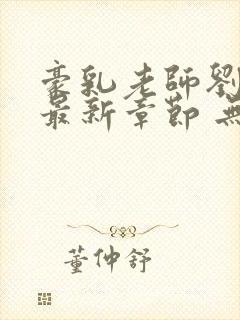 豪乳老師劉
最新章節 無
董仲舒